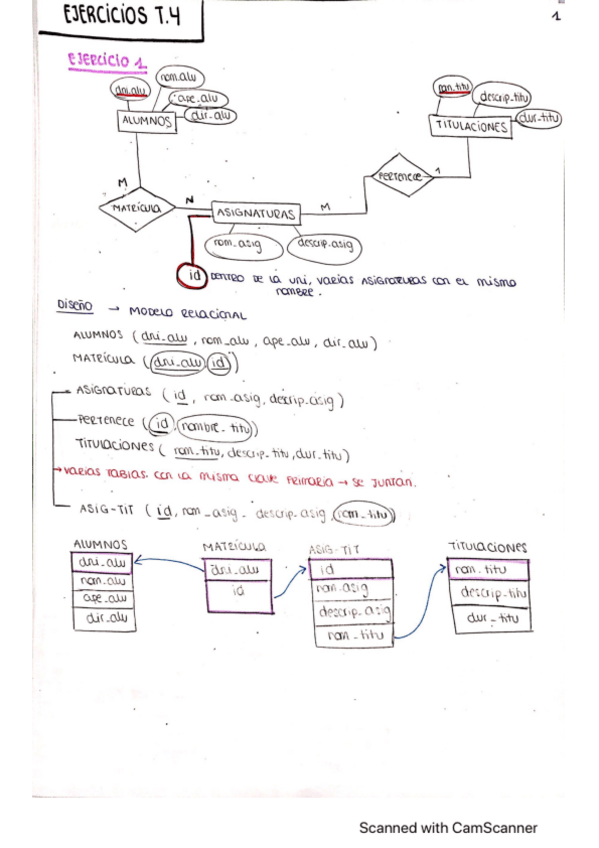 EJERCICIOS T.4
1
EJERCICIO 1
dni_alu
nom_alu
ape_alu
dir_alu
ALUMNOS
nom_titu
descrip_titu
dur_titu
TITULACIONES
M
MATRÍCULA
N
ASIGNATURAS
M
PERTENECE
1
nom_asig
descrip_asig
id
DENTRO DE LA UNI, VARIAS ASIGNATURAS CON EL MISMO
NOMBRE.
DISEÑO → MODELO RELACIONAL
ALUMNOS (dni_alu, nom_alu, ape_alu, dir_alu)
MATRÍCULA (dni_alu, id)
ASIGNATURAS (id, nom_asig, descrip_asig)
PERTENECE (id, nombre_titu)
TITULACIONES (nom_titu, descrip_titu, dur_titu)
→ VARIAS TABLAS CON LA MISMA CLAVE PRIMARIA → SE JUNTAN.
ASIG-TIT (id, nom_asig, descrip_asig, nom_titu)
ALUMNOS
dni_alu
nom_alu
ape_alu
dir_alu
MATRÍCULA
dni_alu
id
ASIG-TIT
id
nom_asig
descrip_asig
nom_titu
TITULACIONES
nom_titu
descrip_titu
dur_titu
Scanned with CamScanner